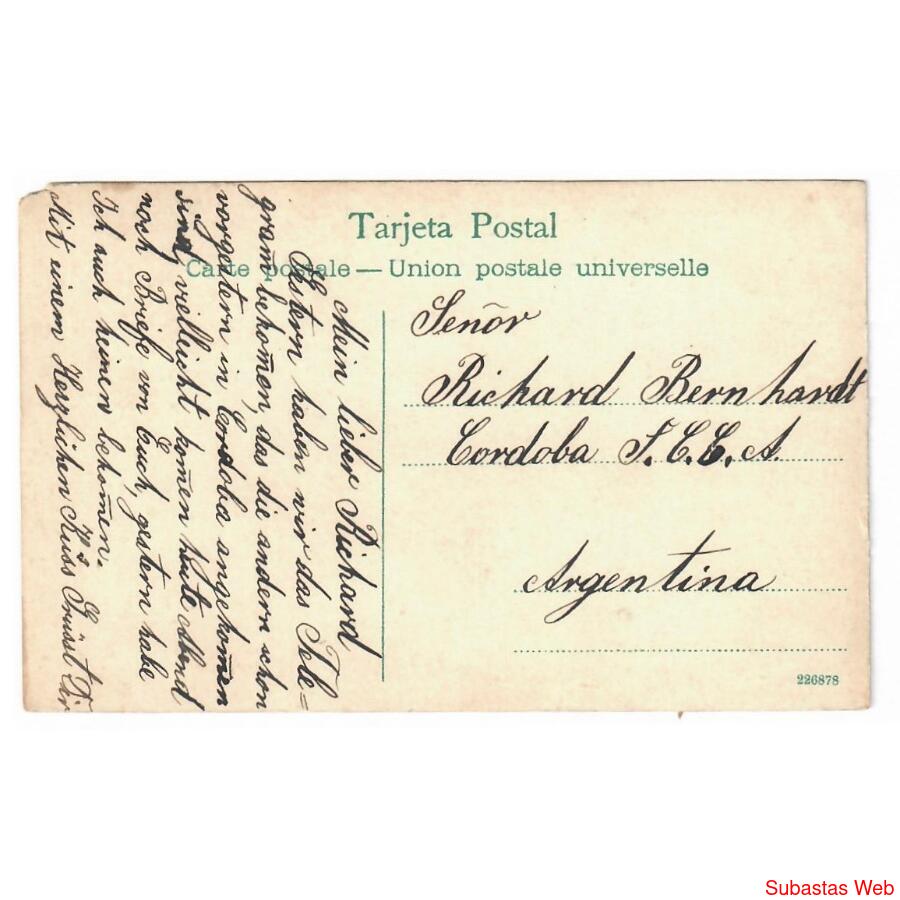 Tarjeta Postal
Carte postale — Union postale universelle
Mein lieber Richard
Gestern haben wir das Tele=
gram̄ bekom̄en, das die andern schon
vorgestern in Cordoba angekom̄en
sind, vielleicht kom̄en heute Abend
noch Briefe von Euch, gestern habe
Ich auch keinen bekom̄en.
Mit einem Herzlichen Kuss Grüsst Dir
Senõr
Richard Bernhardt
Cordoba F. C. C. A.
Argentina
226878
Subastas Web